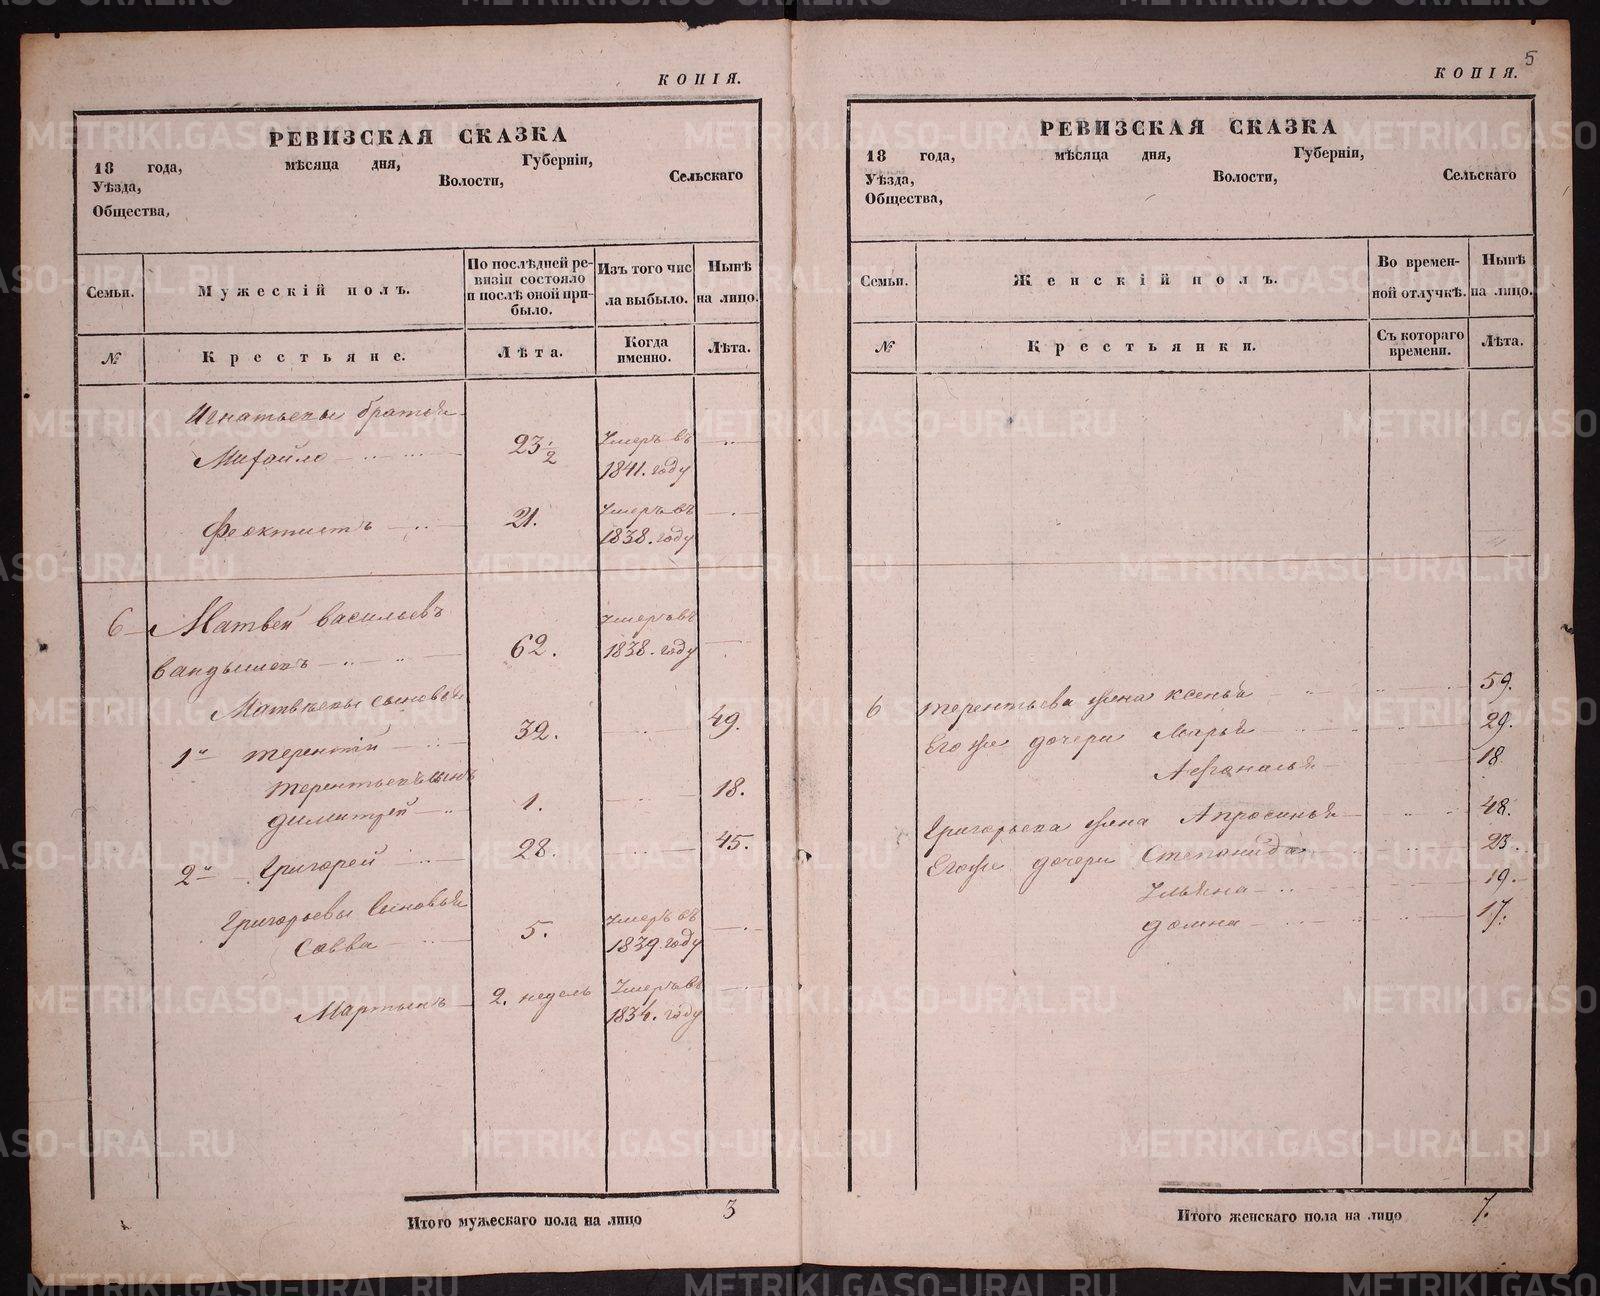 КОПІЯ.
РЕВИЗСКАЯ СКАЗКА
18 года, мѣсяца дня, Губерніи,
Уѣзда, Волости, Сельскаго
Общества,
Семьи. Мужескій полъ. По послѣдней ревизіи состояло и послѣ оной прибыло. Изъ того числа выбыло. Нынѣ на лицо.
№ Крестьяне. Лѣта. Когда именно. Лѣта.
Игнатьевы братья
Михайло 23 1/2 Умеръ въ 1841. году
Феоктистъ 21. Умеръ въ 1838. году
6 Матвей Васильевъ
62. Умеръ въ 1838. году
Матвѣевы сыновья
1й Терентій 32. 49.
Терентьевъ сынъ
Димитрей 1. 18.
2й Григорей 28. 45.
Григорьевы сыновья
Савва 5. Умеръ въ 1839. году
Мартынъ 2. недель Умеръ въ 1834. году
Итого мужескаго пола на лицо 3
5
КОПІЯ.
РЕВИЗСКАЯ СКАЗКА
18 года, мѣсяца дня, Губерніи,
Уѣзда, Волости, Сельскаго
Общества,
Семьи. Женскій полъ. Во временной отлучкѣ. Нынѣ на лицо.
№ Крестьянки. Съ котораго времени. Лѣта.
6 Терентьева жена Ксенья 59.
Его же дочери Марья 29.
Афанасья 18
Григорьева жена Апросинья 48.
Его же дочери Степанида 23.
Ульяна 19.
Домна 17.
Итого женскаго пола на лицо 7.
METRIKI.GASO-URAL.RU